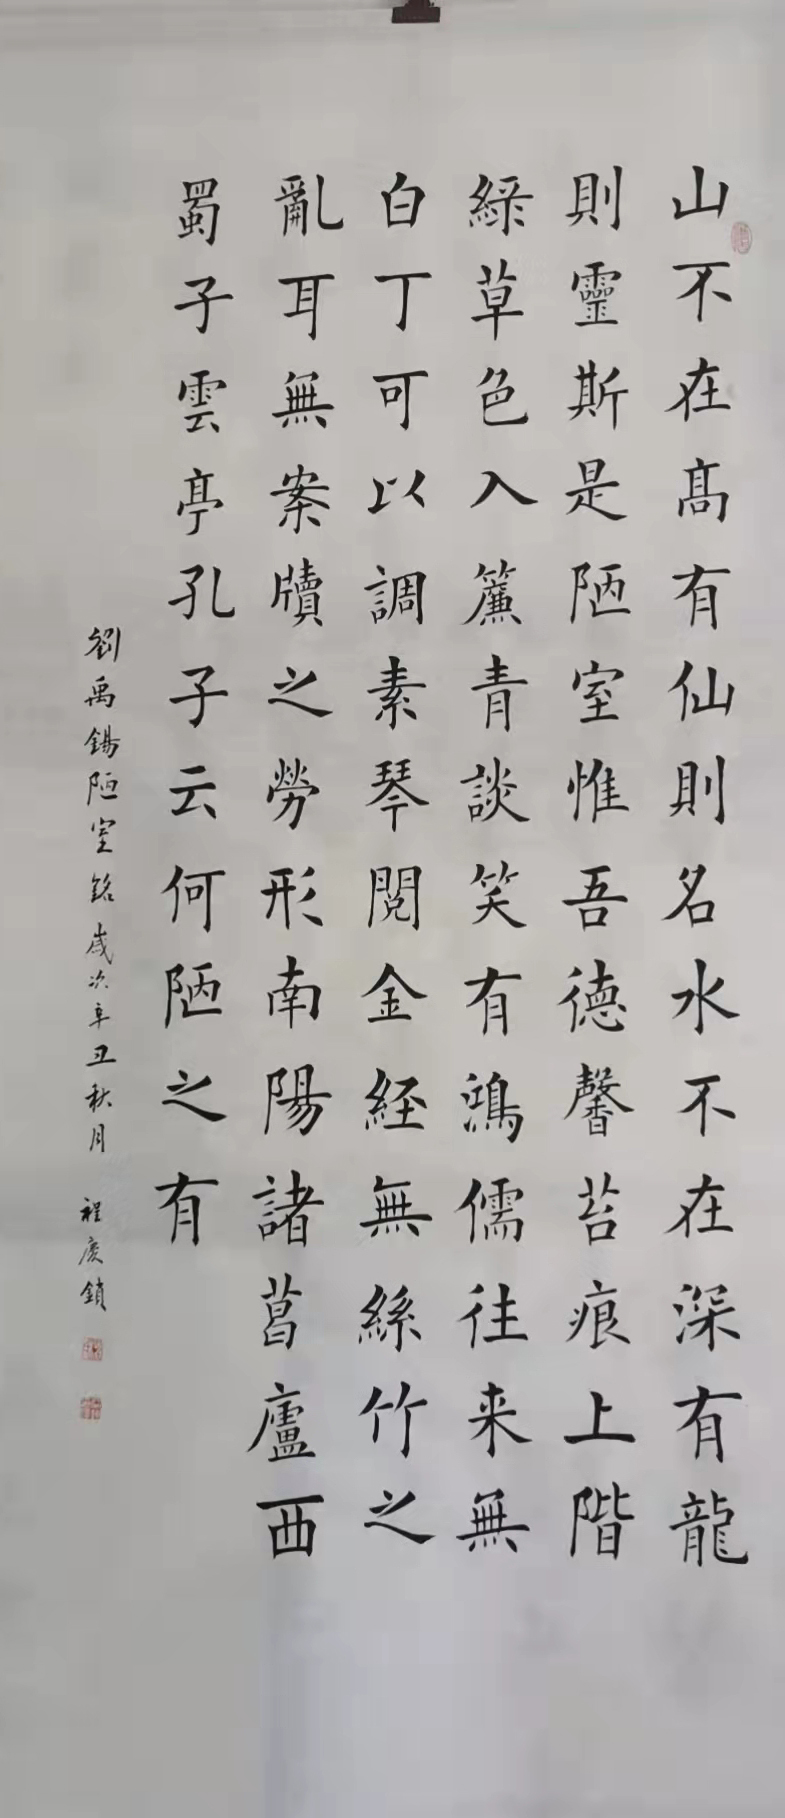 山不在髙有仙則名水不在深有龍
則靈斯是陋室惟吾德馨苔痕上階
綠草色入簾青談笑有鴻儒往来無
白丁可以調素琴閱金経無絲竹之
亂耳無案牘之勞形南陽諸葛廬西
蜀子雲亭孔子云何陋之有
劉禹錫陋室銘歲次辛丑秋月 程慶鎖